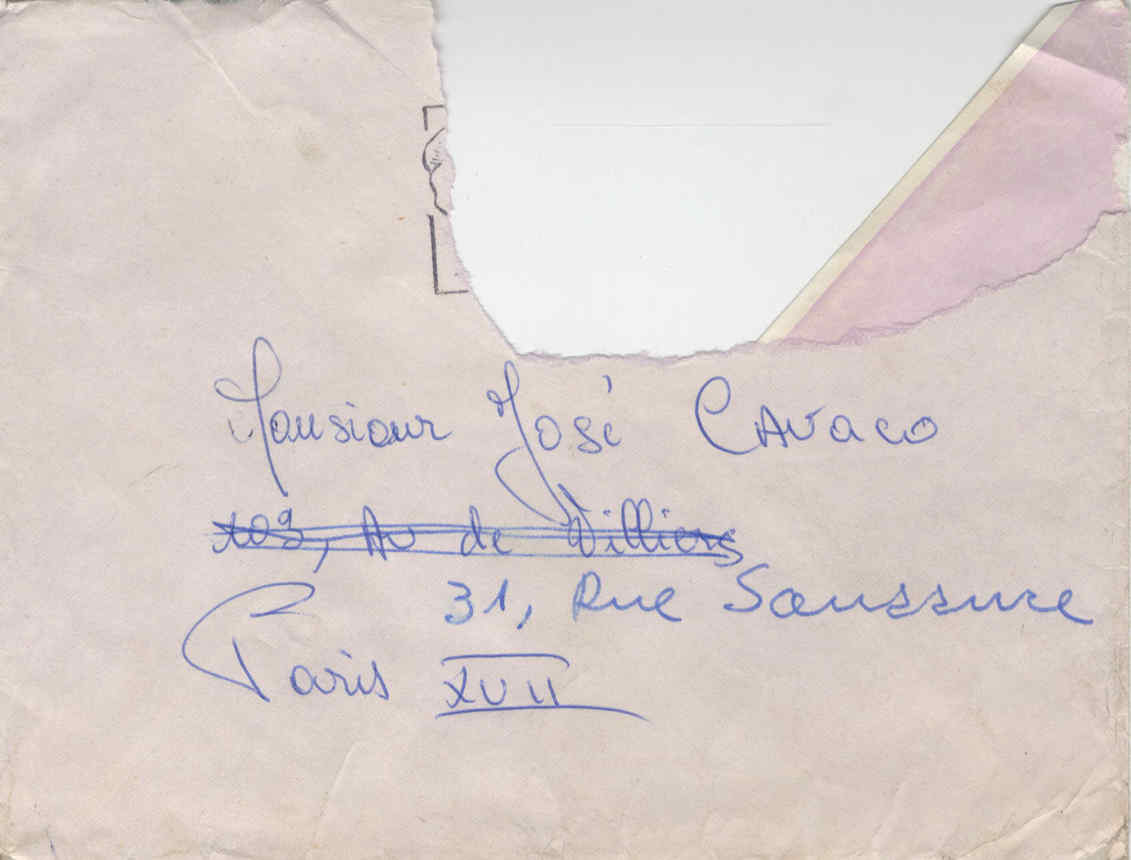 Monsieur José CAvaco
109, Av de Villiers
31, Rue Saussure
Paris XVII